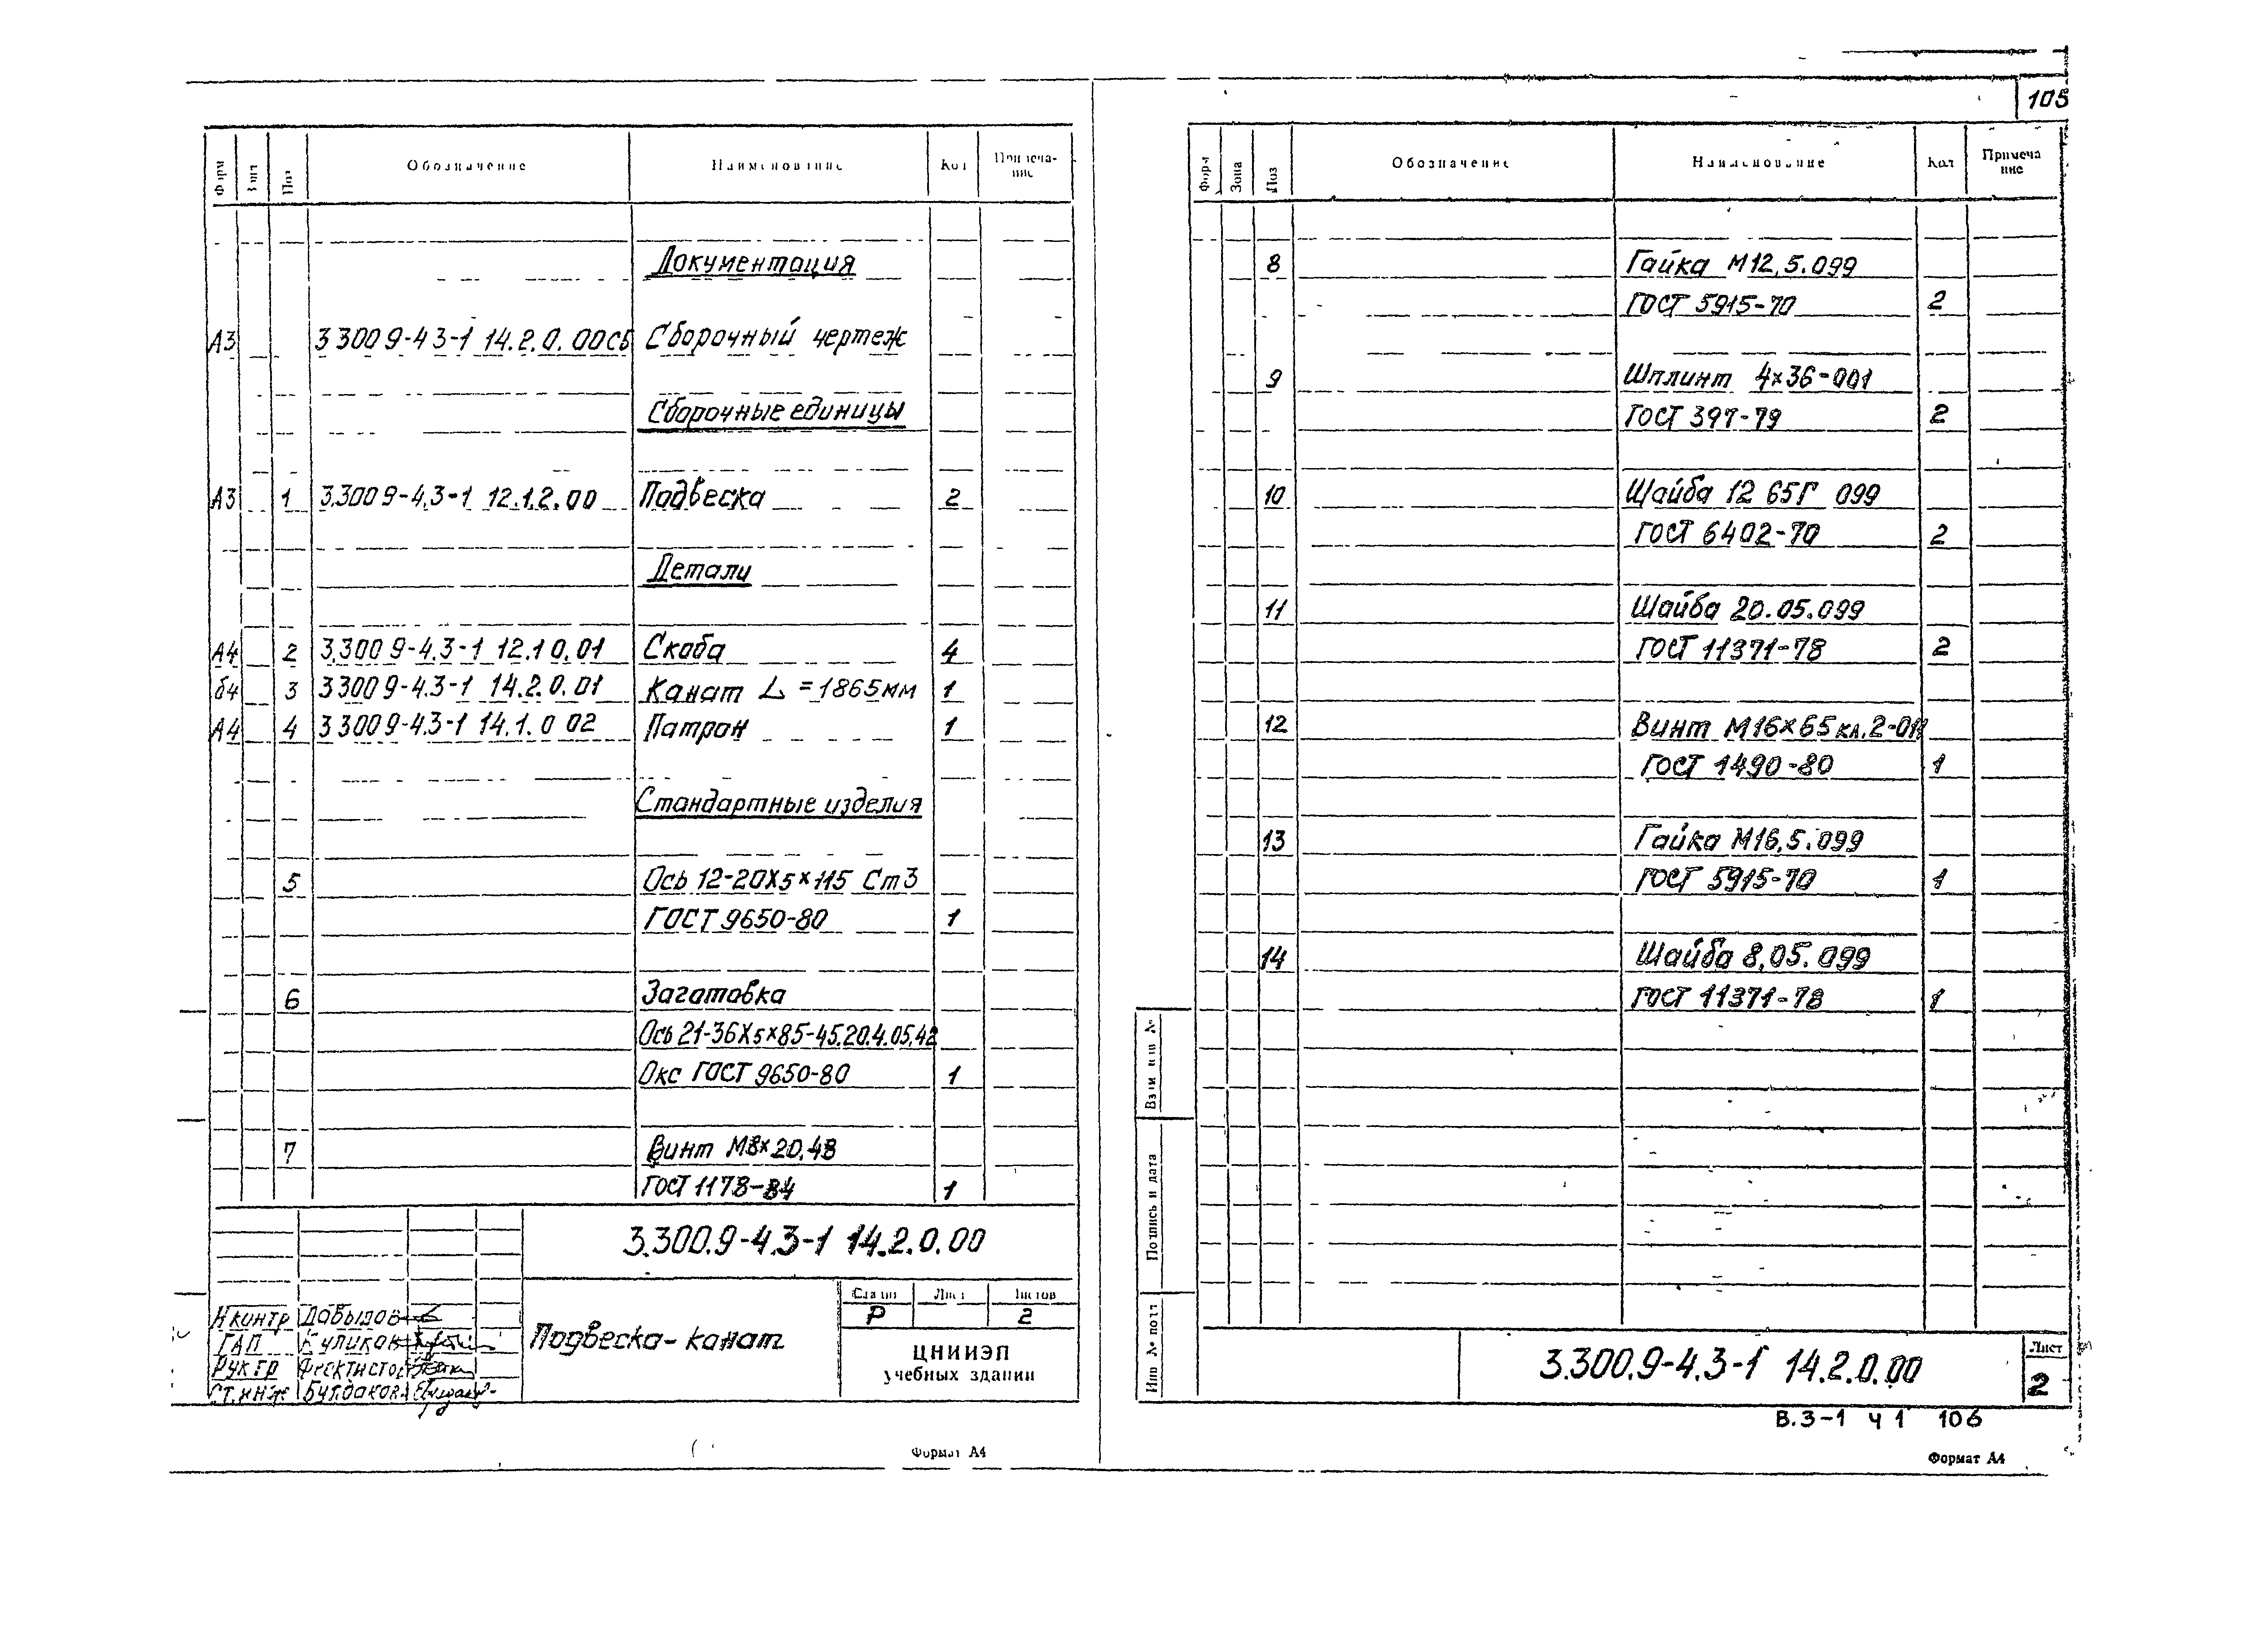 105
Форм Зона Поз Обозначение Наименование Кол Примеча-
ние
Документация
А3 3 300 9-4 3-1 14.2.0.00СБ Сборочный чертеж
Сборочные единицы
А3 1 3.300 9-4,3-1 12.1.2.00 Подвеска 2
Детали
А4 2 3.300 9-4.3-1 12.1 0.01 Скоба 4
б4 3 3 300 9-4.3-1 14.2.0.01 Канат L = 1865мм 1
А4 4 3 300 9-4.3-1 14.1.0 02 Патрон 1
Стандартные изделия
5 Ось 12-20X5×115 Ст3
ГОСТ 9650-80 1
6 Заготовка
Ось 21-36X5×85-45.20.4.05.42
Окс ГОСТ 9650-80 1
7 Винт М8×20.48
ГОСТ 1178-84 1
3.300.9-4.3-1 14.2.0.00
Н контр Давыдов
ГАП Куликов
Рук гр Феоктистов
Ст.инж Булдакова
Подвеска-канат
Стадия Лист Листов
Р 2
ЦНИИЭП
учебных зданий
Формат А4
Форм Зона Поз Обозначение Наименование Кол Примеча
ние
8 Гайка М12,5.099
ГОСТ 5915-70 2
9 Шплинт 4×36-001
ГОСТ 397-79 2
10 Шайба 12 65Г 099
ГОСТ 6402-70 2
11 Шайба 20.05.099
ГОСТ 11371-78 2
12 Винт М16×65 кл.2-011
ГОСТ 1490-80 1
13 Гайка М16,5.099
ГОСТ 5915-70 1
14 Шайба 8,05.099
ГОСТ 11371-78 1
Взам инв №
Подпись и дата
Инв № подл
3.300.9-4.3-1 14.2.0.00
Лист
2
В.3-1 ч 1 106
Формат А4